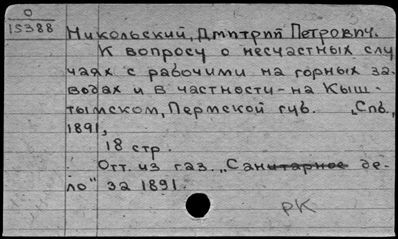 О
15388
Никольский, Дмитрий Петрович.
К вопросу о несчастных слу
чаях с рабочими на горных за-
водах и в частности - на Кыш-
тымском, Пермской губ. Спб.,
1891,
18 стр.
Отт. из газ. „Санитарное де-
ло" за 1891.
РК